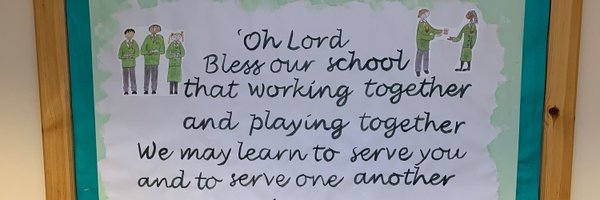 'Oh Lord
Bless our school
that working together
and playing together
We may learn to serve you
and to serve one another